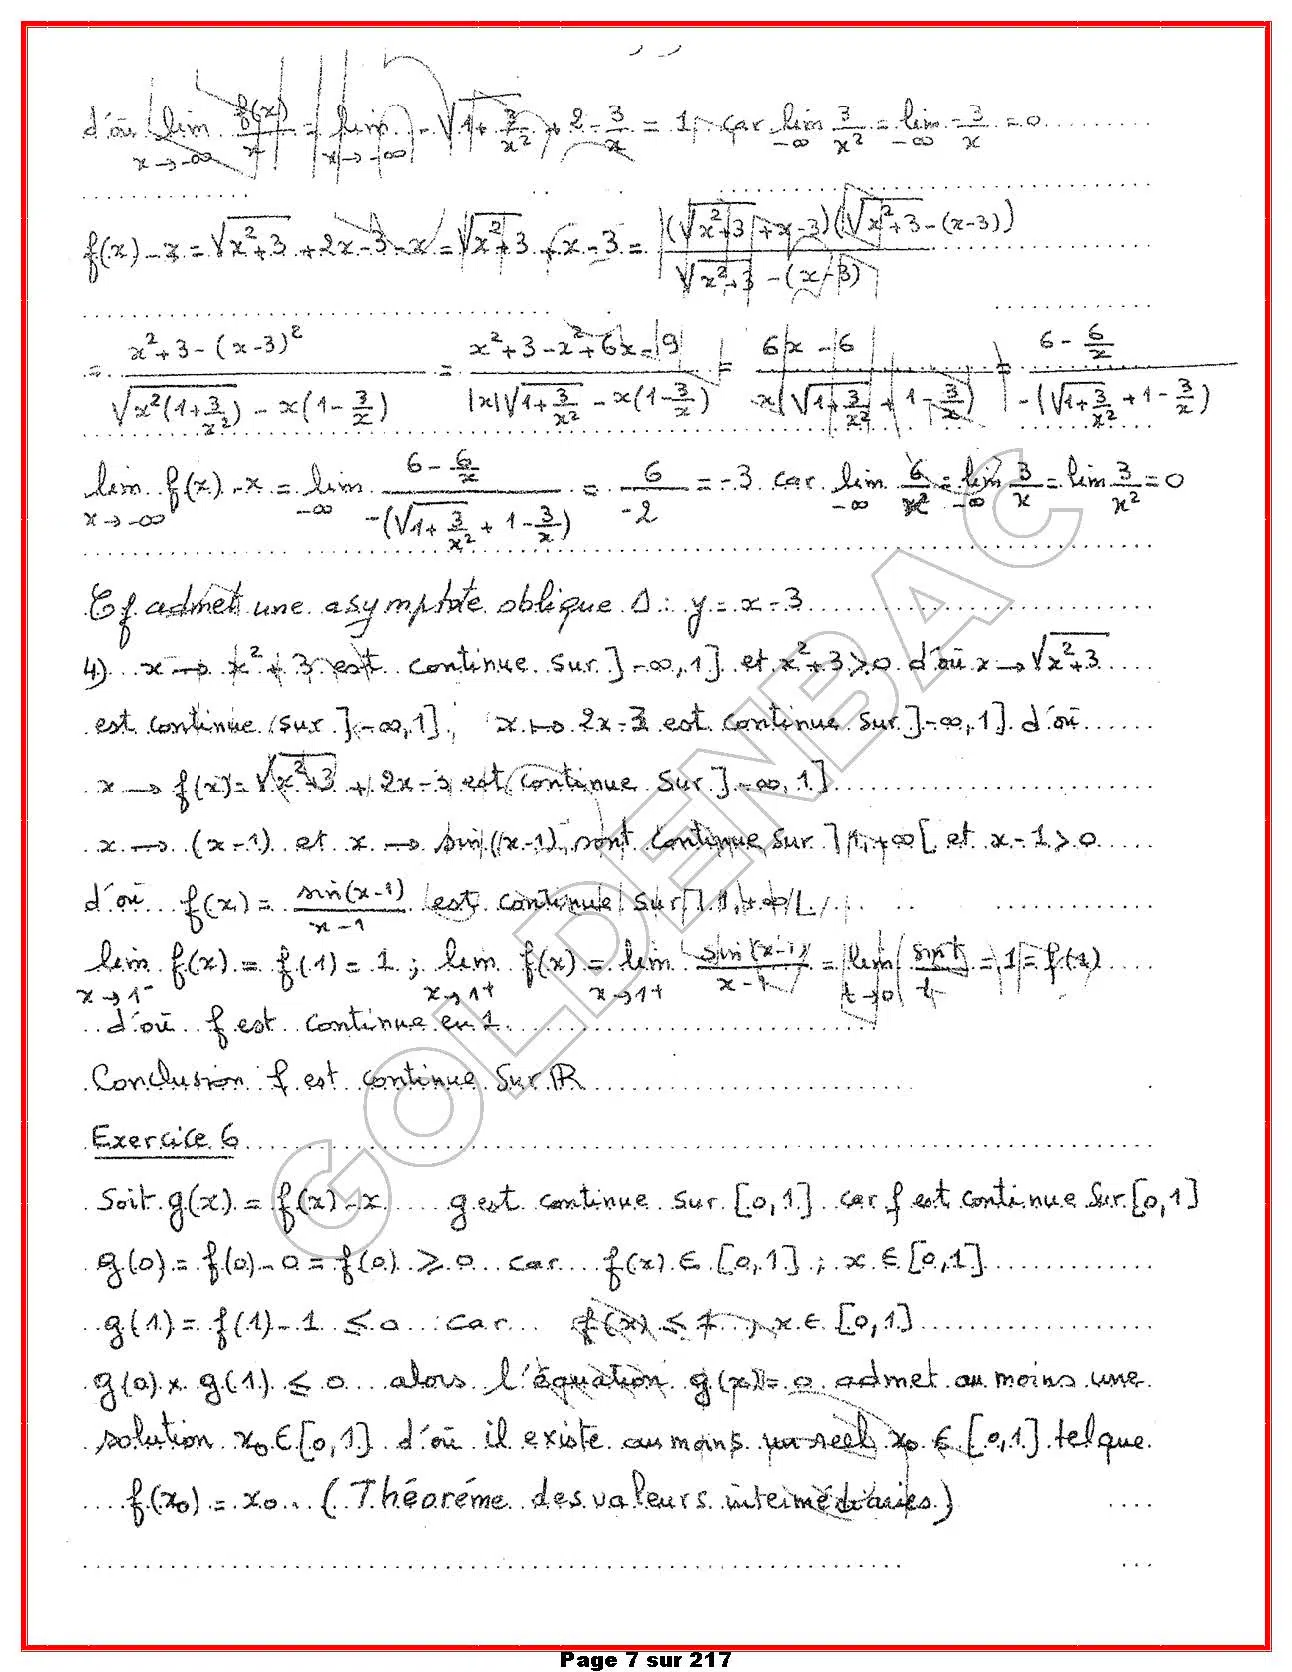 d'où lim x→-∞ f(x)/x = lim x→-∞ -√(1+3/x²) + 2 - 3/x = 1, car lim -∞ 3/x² = lim -∞ -3/x = 0
f(x)-x = √(x²+3) + 2x-3-x = √(x²+3) + x-3 = (√(x²+3) + x-3)(√(x²+3) - (x-3)) / (√(x²+3) - (x-3))
= (x²+3-(x-3)²) / (√(x²(1+3/x²)) - x(1-3/x)) = (x²+3-x²+6x-9) / (|x|√(1+3/x²) - x(1-3/x)) = (6x-6) / (x(√(1+3/x²) + 1-3/x)) = (6-6/x) / (-(√(1+3/x²) + 1-3/x))
lim x→-∞ f(x)-x = lim -∞ (6-6/x) / (-(√(1+3/x²) + 1-3/x)) = 6/-2 = -3 car lim -∞ 6/x² = lim -∞ 3/x = lim 3/x² = 0
Cf admet une asymptote oblique Δ: y = x-3
4) x → x²+3 est continue sur ]-∞,1] et x²+3 ≥ 0 d'où x → √(x²+3)
est continue sur ]-∞,1] ; x ↦ 2x-3 est continue sur ]-∞,1] d'où
x → f(x) = √(x²+3) + 2x-3 est continue sur ]-∞,1]
x → (x-1) et x → sin(x-1) sont continue sur ]1,+∞[ et x-1>0
d'où f(x) = sin(x-1)/(x-1) est continue sur ]1,+∞[
lim x→1⁻ f(x) = f(1) = 1 ; lim x→1⁺ f(x) = lim x→1⁺ sin(x-1)/(x-1) = lim t→0 sint/t = 1 = f(1)
d'où f est continue en 1
Conclusion f est continue sur ℝ
Exercice 6
Soit g(x) = f(x)-x g est continue sur [0,1] car f est continue sur [0,1]
g(0) = f(0)-0 = f(0) ≥ 0 car f(x) ∈ [0,1] ; x ∈ [0,1]
g(1) = f(1)-1 ≤ 0 car f(x) ≤ 1, x ∈ [0,1]
g(0) × g(1) ≤ 0 alors l'équation g(x)=0 admet au moins une
solution x₀ ∈ [0,1] d'où il existe au moins un réel x₀ ∈ [0,1] tel que
f(x₀) = x₀ (Théoréme des valeurs intermédiaires)
GOLDENBAC
Page 7 sur 217